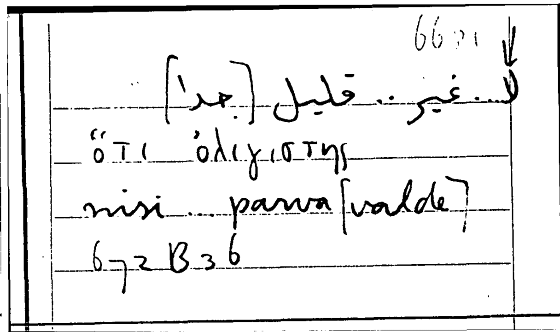 لا .. غير .. قليل [جدا]
ὅτι ὀλιγιστης
nisi ... parva [valde]
672 B 36